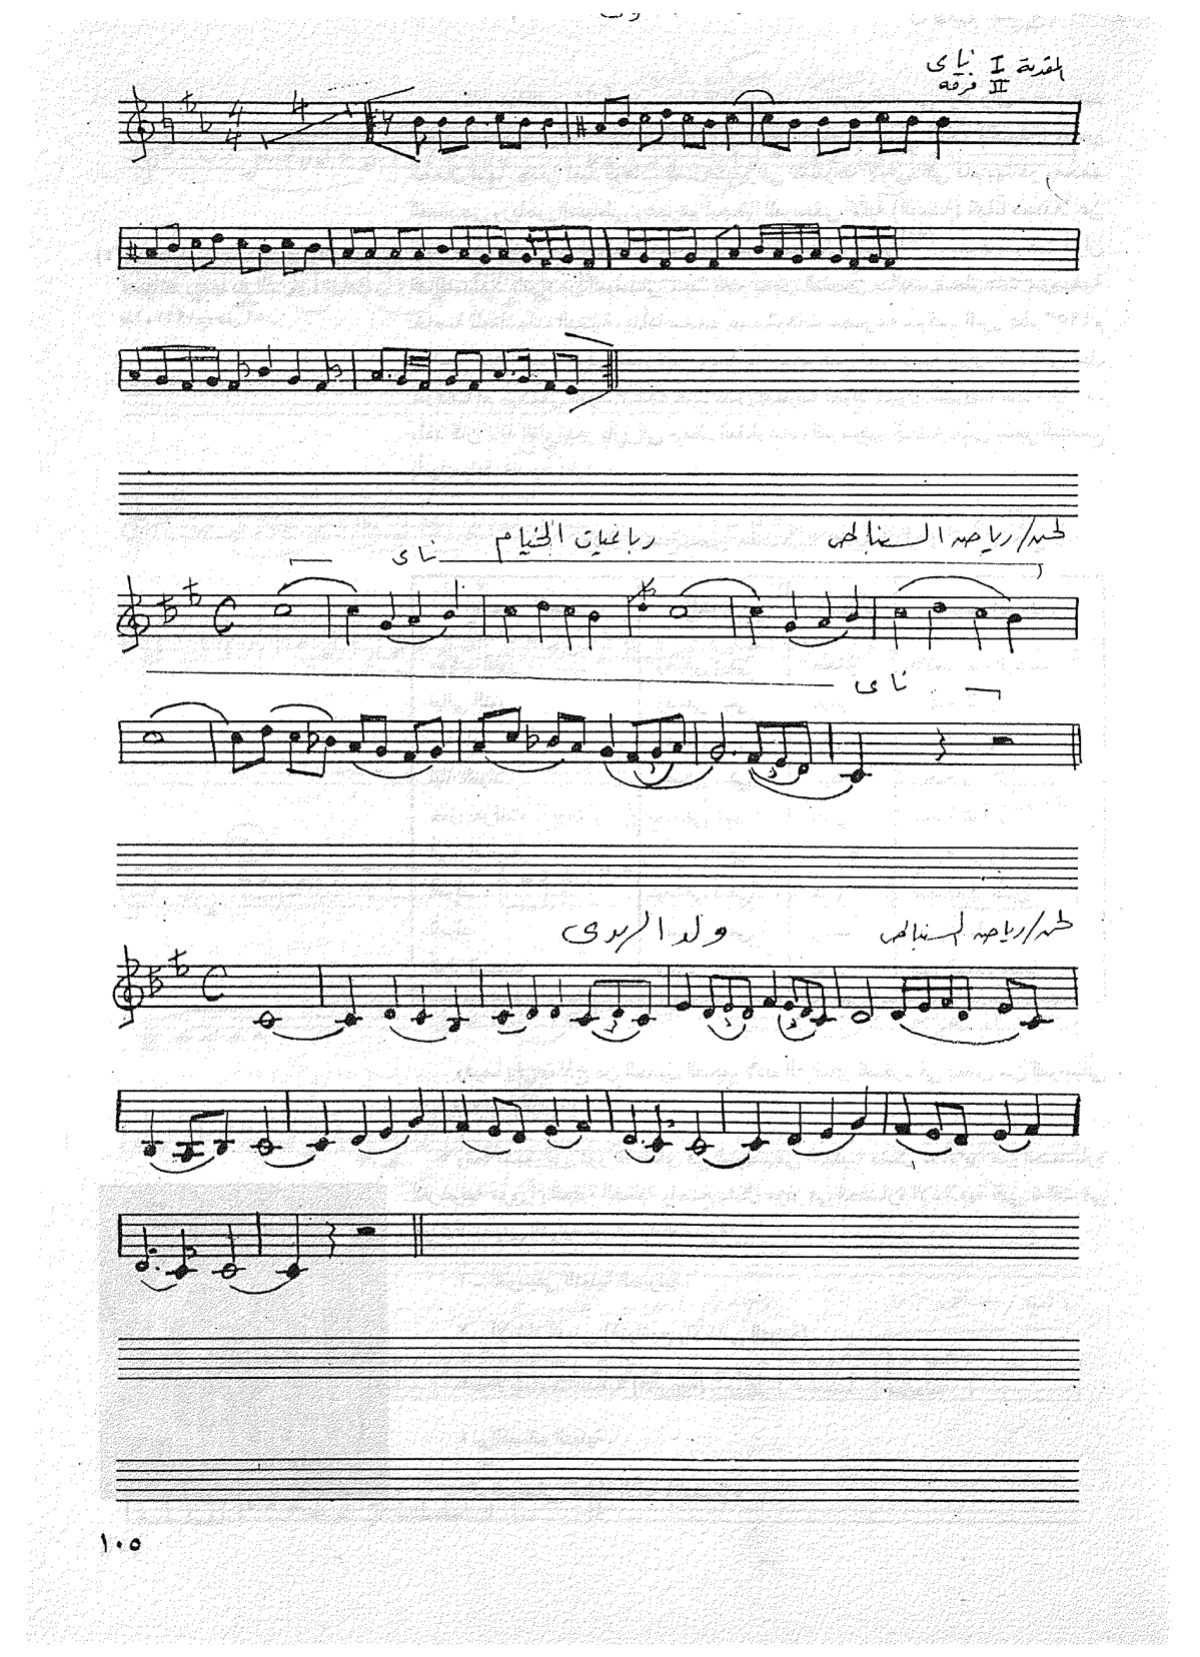 المقدمة I ناى
II فرقه
4
4
4
لحن/رياض السنباطى
رباعيات الخيام
ناى
ناى
لحن/رياض السنباطى
ولد الهدى
3
3
١٠٥